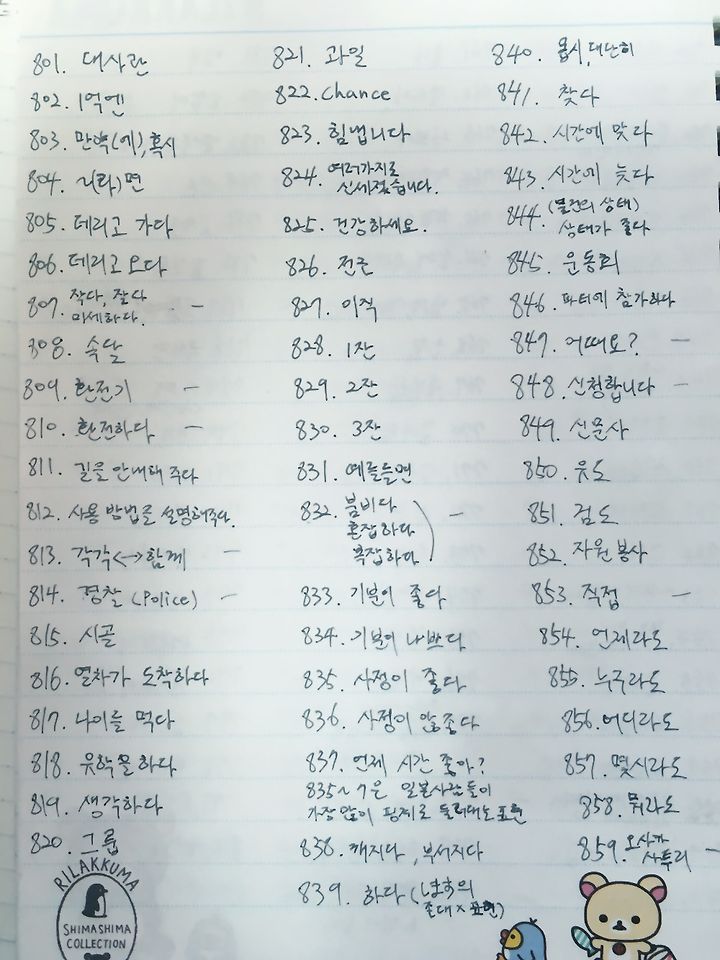 801. 대사관
802. 1억엔
803. 만약(에), 혹시
804. 니(라)면
805. 데리고 가다
806. 데리고 오다
807. 작다, 잘다
미세하다.
808. 속달
809. 환전기
810. 환전하다
811. 길을 안내해 주다
812. 사용 방법을 설명해주다.
813. 각각↔함께
814. 경찰 (Police)
815. 시골
816. 열차가 도착하다
817. 나이를 먹다
818. 유학을 하다
819. 생각하다
820. 그룹
821. 과일
822. chance
823. 힘냅니다
824. 여러가지로
신세졌습니다.
825. 건강하세요.
826. 전근
827. 이직
828. 1잔
829. 2잔
830. 3잔
831. 예를들면
832. 붐비다
혼잡하다
복잡하다
833. 기분이 좋다
834. 기분이 나쁘다
835. 사정이 좋다
836. 사정이 안좋다
837. 언제 시간 좋아?
835~7은 일본사람들이
가장 많이 핑계로 둘러대는 표현
838. 깨지다, 부서지다
839. 하다 (します의
존대 x 표현)
840. 몹시, 대단히
841. 찾다
842. 시간에 맞다
843. 시간에 늦다
844. (물건의 상태)
상태가 좋다
845. 운동회
846. 파티에 참가하다
847. 어때요?
848. 신청합니다
849. 신문사
850. 유도
851. 검도
852. 자원봉사
853. 직접
854. 언제라도
855. 누구라도
856. 어디라도
857. 몇시라도
858. 뭐라도
859. 오사카
사투리
RILAKKUMA
SHIMASHIMA
COLLECTION